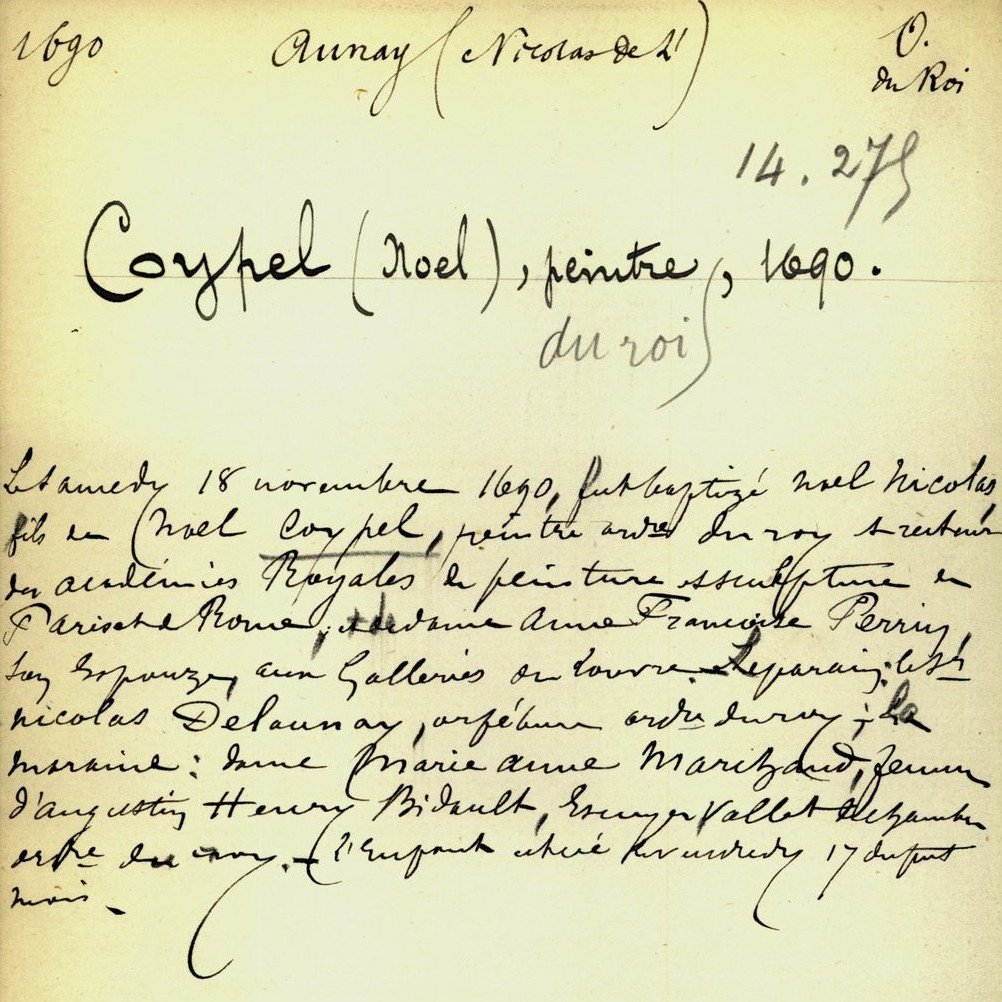 1690 Aunay (Nicolas de L') O.
du Roi
14.275
Coypel (Noel), peintre, 1690.
du roi
Le samedy 18 novembre 1690, fut baptizé noel Nicolas,
fils de Noël Coypel, peintre ordre du roy et recteur
des académies Royales de peinture et sculpture de
Paris et de Rome, et de dame Anne Françoise Perrin,
son Espouze, aux Galleries du Louvre. Le parain: le Sr
nicolas Delaunay, orfébure ordre du roy; La
maraine: dame Marie anne Marizand, femme
d'augustin Henry Bidault, Escuyer Vallet de chambre
ordre du roy. L'Enfant est né le vendredy 17 du pnt
mois.